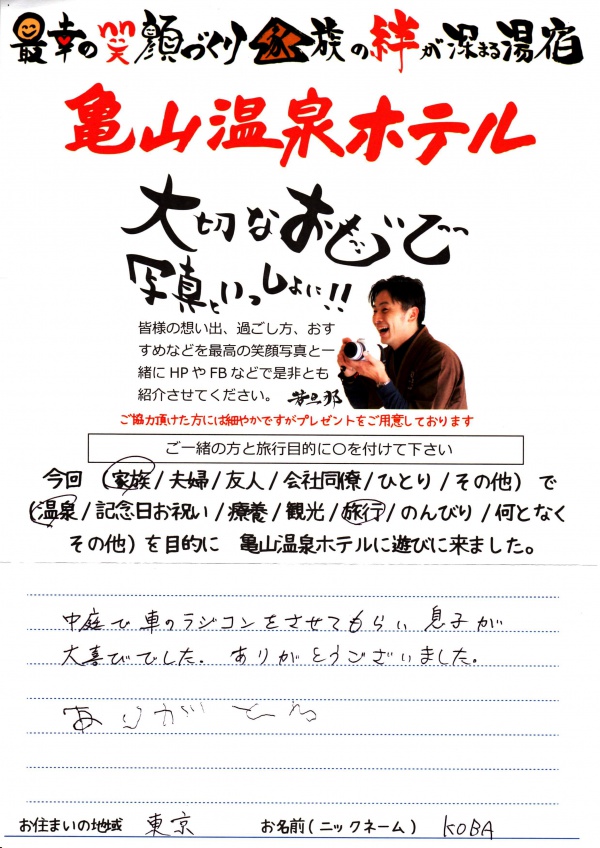 最幸の笑顔づくり家族の絆が深まる湯宿
亀山温泉ホテル
大切なおもいで
写真といっしょに!!
皆様の想い出、過ごし方、おす
すめなどを最高の笑顔写真と一
緒に HP や FB などで是非とも
紹介させてください。 若旦那
ご協力頂けた方には細やかですがプレゼントをご用意しております
ご一緒の方と旅行目的に〇を付けて下さい
今回 (家族/夫婦/友人/会社同僚/ひとり/その他) で
(温泉/記念日お祝い/療養/観光/旅行/のんびり/何となく
その他) を目的に 亀山温泉ホテルに遊びに来ました。
中庭で車のラジコンをさせてもらい息子が
大喜びでした。ありがとうございました。
ありがとう
お住まいの地域 東京 お名前(ニックネーム) KOBA